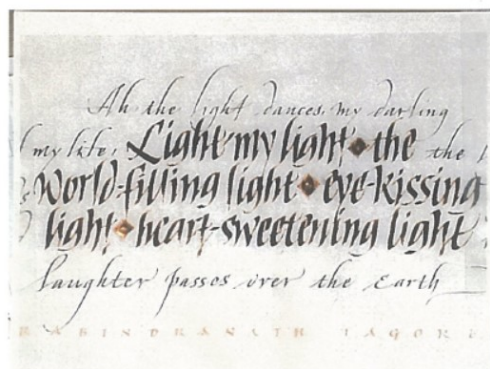 Ah the light dances, my darling
my life; Light my light ◆ the the
World-filling light ◆ eye-kissing
light ◆ heart-sweetening light
laughter passes over the Earth
RABINDRANATH TAGORE